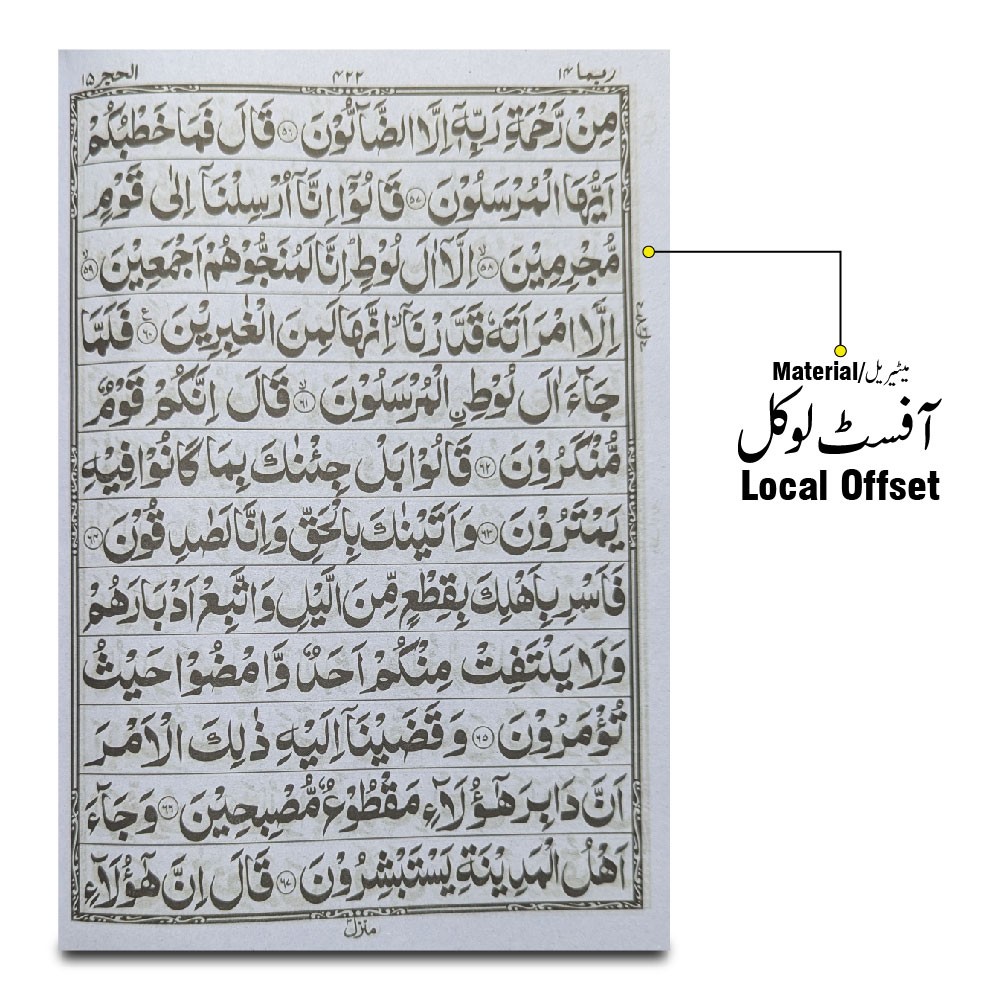 ربما ۱۴
۴۲۲
الحجر ۱۵
مِنْ رَّحْمَةِ رَبِّهٖۤ اِلَّا الضَّآلُّوْنَ ﴿۵۶﴾ قَالَ فَمَا خَطْبُكُمْ
اَيُّهَا الْمُرْسَلُوْنَ ﴿۵۷﴾ قَالُوْۤا اِنَّاۤ اُرْسِلْنَاۤ اِلٰى قَوْمٍ
مُّجْرِمِيْنَ ﴿۵۸﴾ۙ اِلَّاۤ اٰلَ لُوْطٍ ؕ اِنَّا لَمُنَجُّوْهُمْ اَجْمَعِيْنَ ﴿۵۹﴾ۙ
اِلَّا امْرَاَتَهٗ قَدَّرْنَاۤ ۙ اِنَّهَا لَمِنَ الْغٰبِرِيْنَ ﴿۶۰﴾ ع فَلَمَّا
جَآءَ اٰلَ لُوْطِ ۨ الْمُرْسَلُوْنَ ﴿۶۱﴾ۙ قَالَ اِنَّكُمْ قَوْمٌ
مُّنْكَرُوْنَ ﴿۶۲﴾ قَالُوْا بَلْ جِئْنٰكَ بِمَا كَانُوْا فِيْهِ
يَمْتَرُوْنَ ﴿۶۳﴾ وَاَتَيْنٰكَ بِالْحَقِّ وَاِنَّا لَصٰدِقُوْنَ ﴿۶۴﴾
فَاَسْرِ بِاَهْلِكَ بِقِطْعٍ مِّنَ الَّيْلِ وَاتَّبِعْ اَدْبَارَهُمْ
وَلَا يَلْتَفِتْ مِنْكُمْ اَحَدٌ وَّامْضُوْا حَيْثُ
تُؤْمَرُوْنَ ﴿۶۵﴾ وَقَضَيْنَاۤ اِلَيْهِ ذٰلِكَ الْاَمْرَ
اَنَّ دَابِرَ هٰۤؤُلَآءِ مَقْطُوْعٌ مُّصْبِحِيْنَ ﴿۶۶﴾ وَجَآءَ
اَهْلُ الْمَدِيْنَةِ يَسْتَبْشِرُوْنَ ﴿۶۷﴾ قَالَ اِنَّ هٰۤؤُلَآءِ
Material/میٹیریل
آفسٹ لوکل
Local Offset